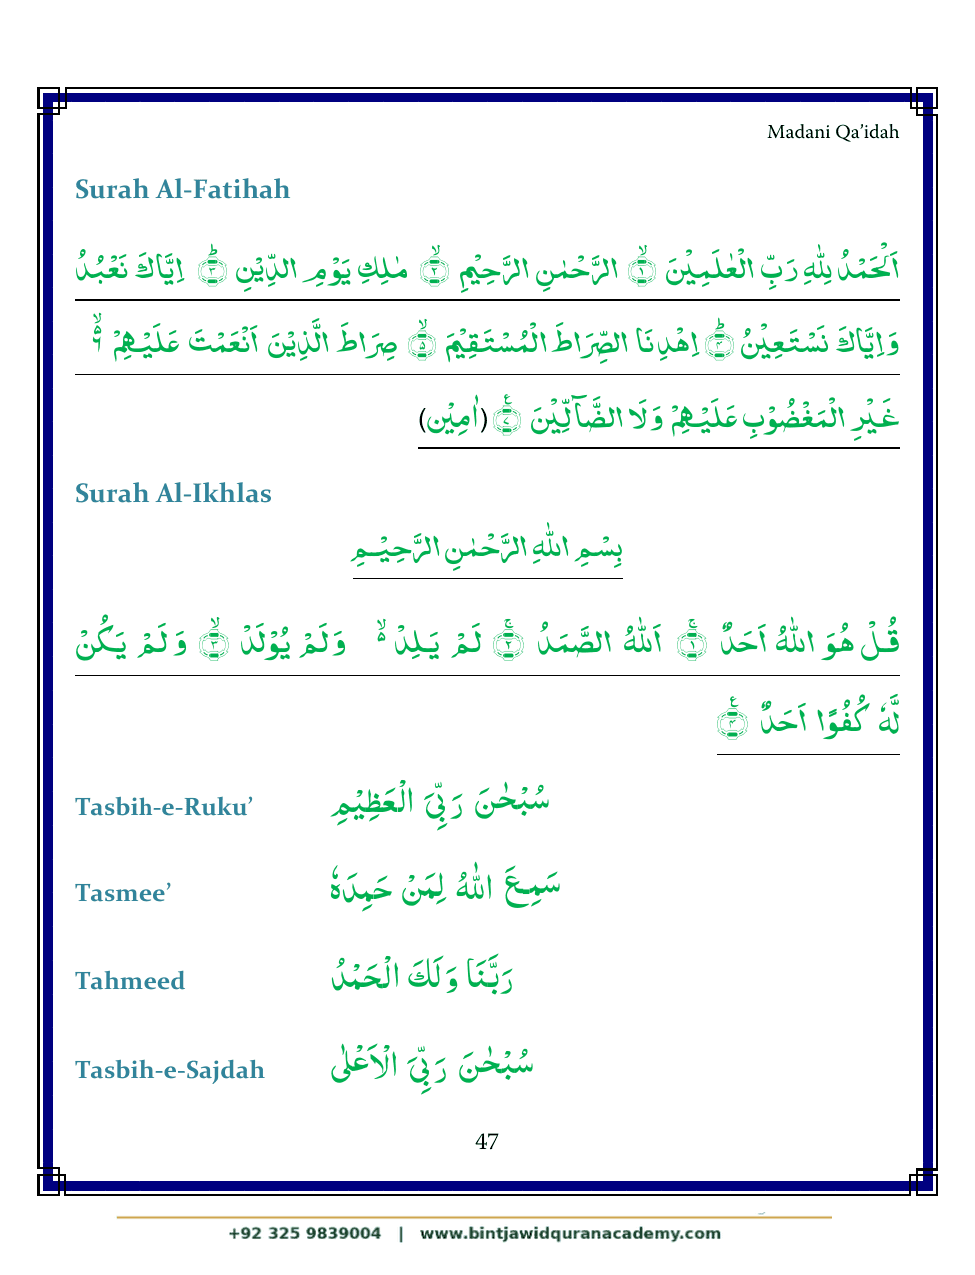 Madani Qa’idah
Surah Al-Fatihah
اَلْحَمْدُ لِلّٰهِ رَبِّ الْعٰلَمِيْنَ ۙ﴿۱﴾ الرَّحْمٰنِ الرَّحِيْمِ ۙ﴿۲﴾ مٰلِكِ يَوْمِ الدِّيْنِ ؕ﴿۳﴾ اِيَّاكَ نَعْبُدُ
وَاِيَّاكَ نَسْتَعِيْنُ ؕ﴿۴﴾ اِهْدِنَا الصِّرَاطَ الْمُسْتَقِيْمَ ۙ﴿۵﴾ صِرَاطَ الَّذِيْنَ اَنْعَمْتَ عَلَيْهِمْ ۙ۬ۦ
غَيْرِ الْمَغْضُوْبِ عَلَيْهِمْ وَلَا الضَّآلِّيْنَ ﴿۷﴾ (اٰمِيْن)
Surah Al-Ikhlas
بِسْمِ اللّٰهِ الرَّحْمٰنِ الرَّحِيْمِ
قُلْ هُوَ اللّٰهُ اَحَدٌ ۚ﴿۱﴾ اَللّٰهُ الصَّمَدُ ۚ﴿۲﴾ لَمْ يَلِدْ ۙ۬ وَلَمْ يُوْلَدْ ۙ﴿۳﴾ وَلَمْ يَكُنْ
لَّهٗ كُفُوًا اَحَدٌ ﴿۴﴾
Tasbih-e-Ruku’ سُبْحٰنَ رَبِّيَ الْعَظِيْمِ
Tasmee’ سَمِعَ اللّٰهُ لِمَنْ حَمِدَهٗ
Tahmeed رَبَّنَا وَلَكَ الْحَمْدُ
Tasbih-e-Sajdah سُبْحٰنَ رَبِّيَ الْاَعْلٰى
47
+92 325 9839004 | www.bintjawidquranacademy.com